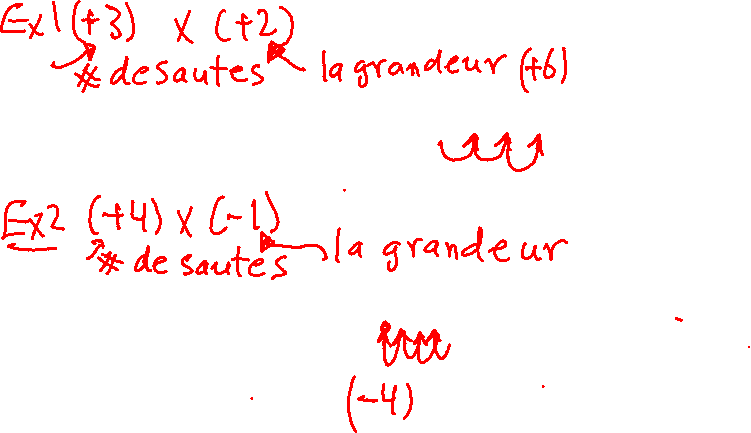 Ex1 (+3) x (+2)
# de sautes la grandeur (+6)
Ex2 (+4) x (-1)
# de sautes la grandeur
(-4)